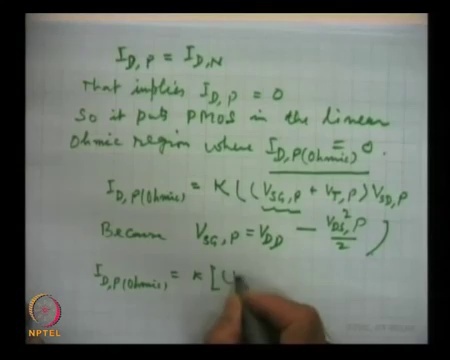 I_D,P = I_D,N
That implies I_D,P = 0
So it puts PMOS in the linear
Ohmic region where I_D,P(Ohmic) = 0.
I_D,P(Ohmic) = K ((V_SG,P + V_T,P) V_SD,P
Because V_SG,P = V_DD - V_DS²,P / 2 )
I_D,P(Ohmic) = K [(
NPTEL